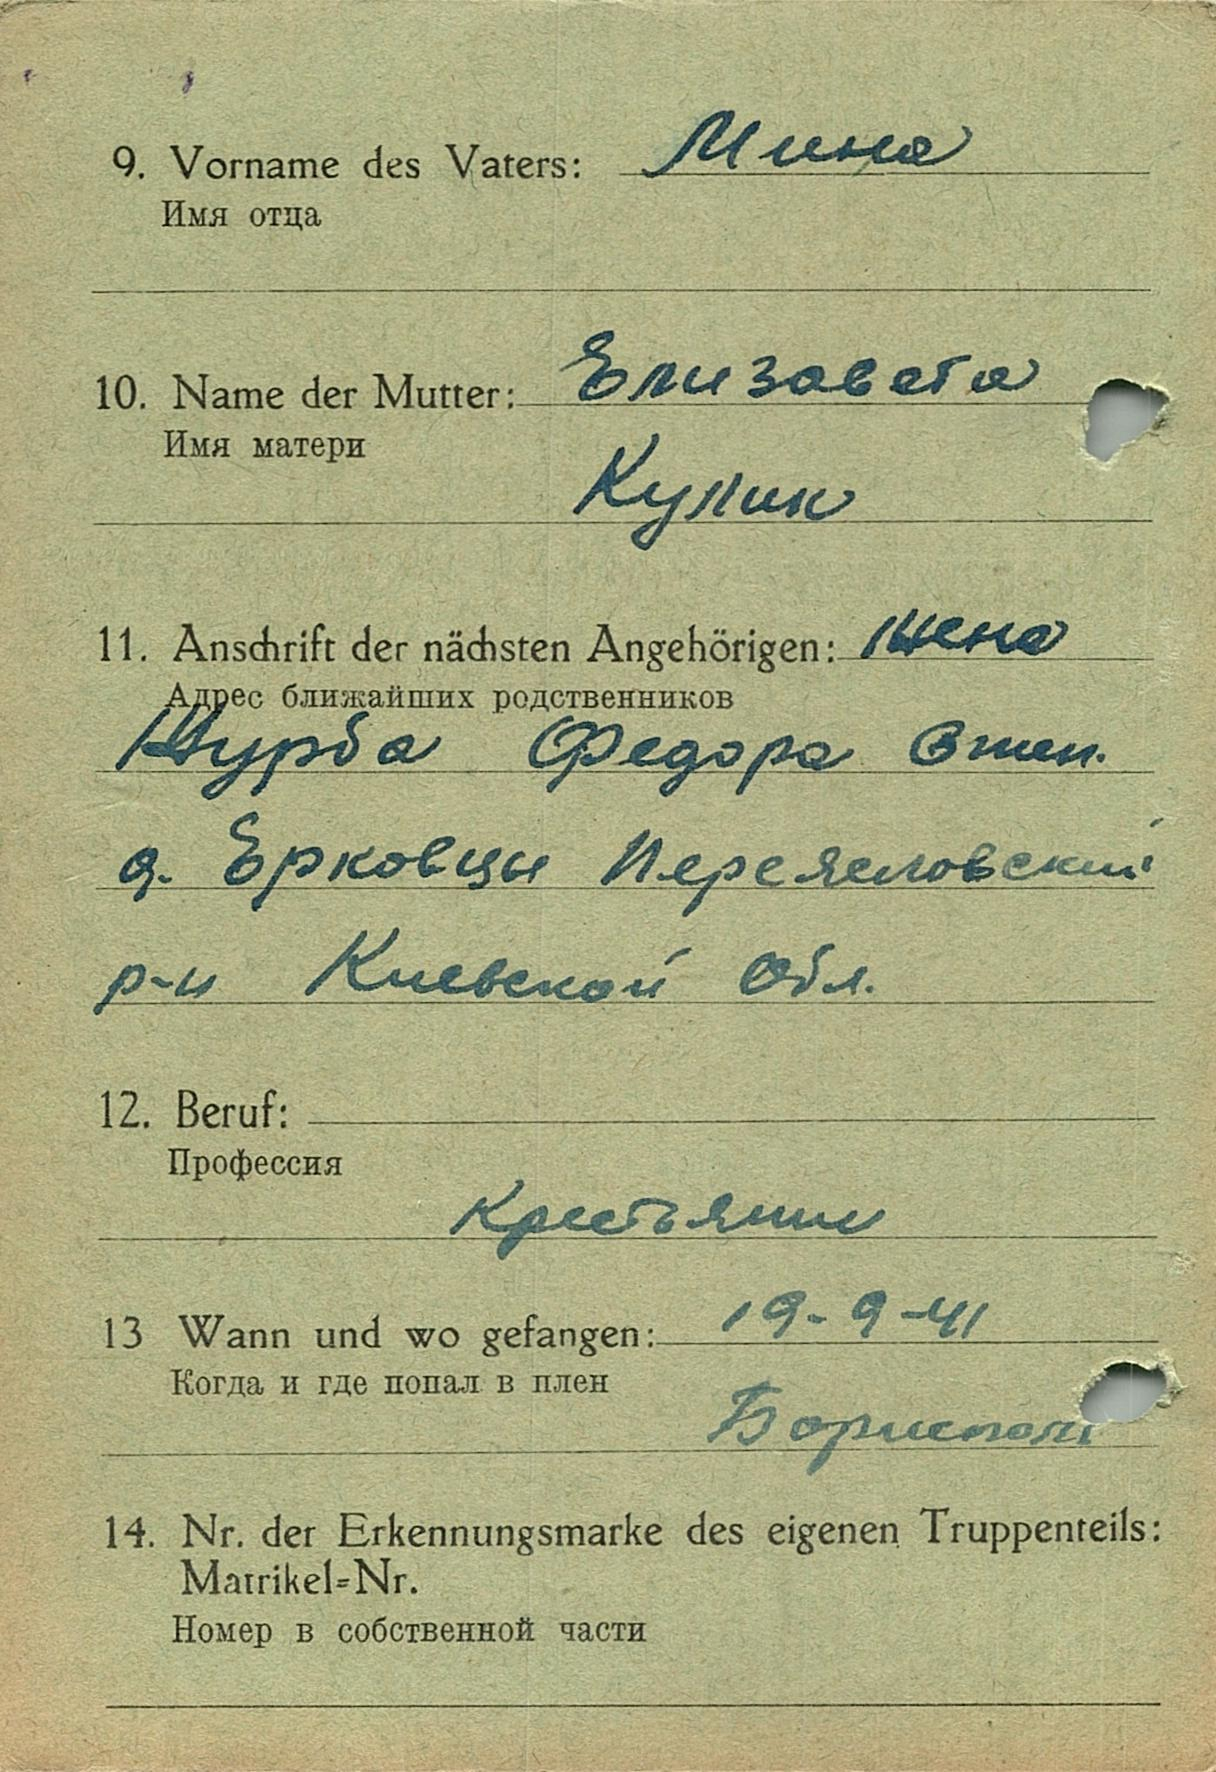 9. Vorname des Vaters: Мина
Имя отца
10. Name der Mutter: Елизавета
Имя матери
Кулик
11. Anschrift der nächsten Angehörigen: жена
Адрес ближайших родственников
Журба Федора
д. Ерковцы Переясловский
р-н Киевской Обл.
12. Beruf:
Профессия
Крестьянин
13 Wann und wo gefangen: 19-9-41
Когда и где попал в плен
Борисполь
14. Nr. der Erkennungsmarke des eigenen Truppenteils:
Matrikel=Nr.
Номер в собственной части